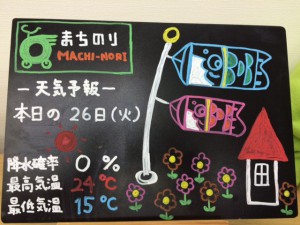 まちのり
MACHI-NORI
ー天気予報ー
本日の 26日(火)
降水確率 0 %
最高気温 24℃
最低気温 15℃